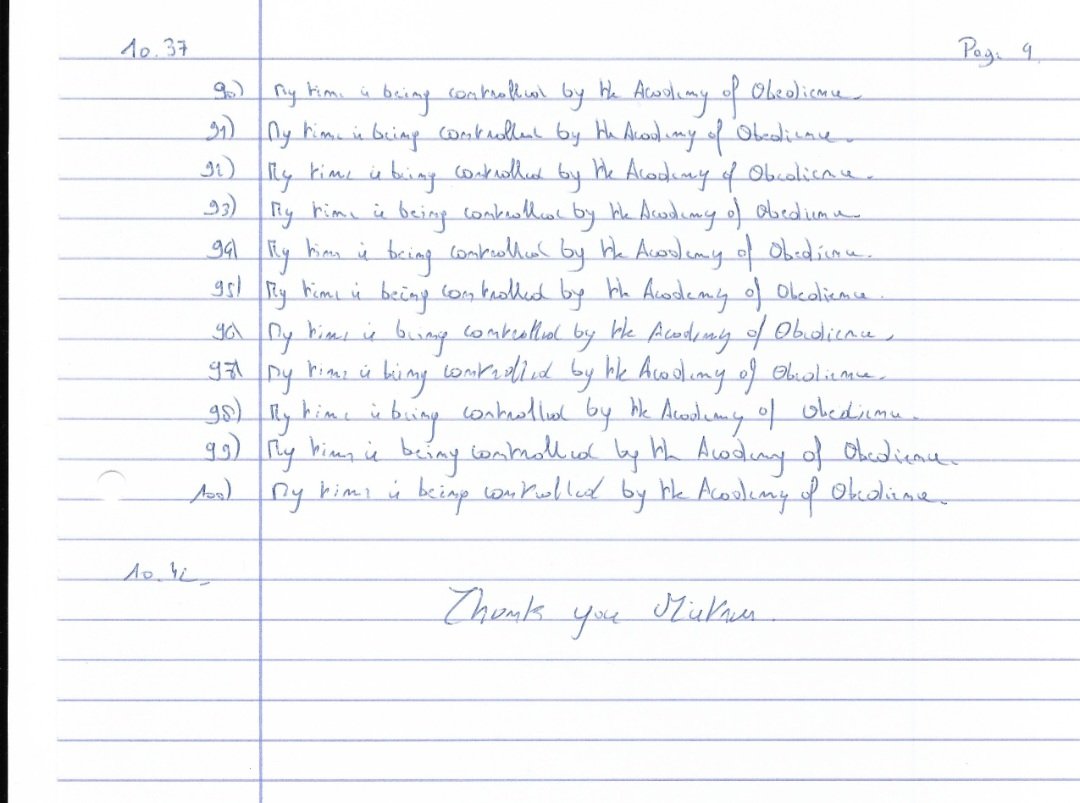 10.37 Page 9
90) My time is being controlled by the Academy of Obedience.
91) My time is being controlled by the Academy of Obedience.
92) My time is being controlled by the Academy of Obedience.
93) My time is being controlled by the Academy of Obedience
94) My time is being controlled by the Academy of Obedience.
95) My time is being controlled by the Academy of Obedience.
96) My time is being controlled by the Academy of Obedience.
97) My time is being controlled by the Academy of Obedience.
98) My time is being controlled by the Academy of Obedience.
99) My time is being controlled by the Academy of Obedience.
100) My time is being controlled by the Academy of Obedience.
10.42
Thank you Mistress.